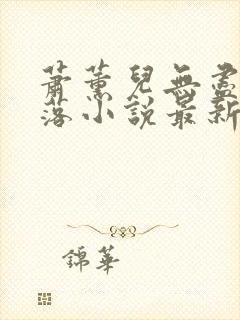 蕭薰兒無盡
落小說最新
錦華